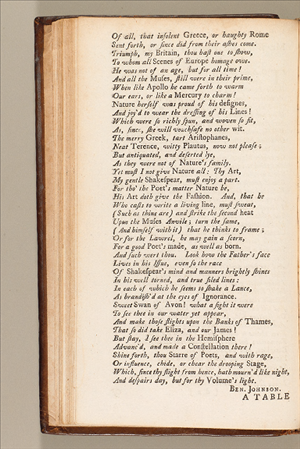 Of all, that insolent Greece, or haughty Rome
Sent forth, or since did from their ashes come.
Triumph, my Britain, thou hast one to show,
To whom all Scenes of Europe homage owe.
He was not of an age, but for all time!
And all the Muses, still were in their prime,
When like Apollo he came forth to warm
Our ears, or like a Mercury to charm!
Nature herself was proud of his designes,
And joy'd to wear the dressing of his Lines!
Which were so richly spun, and woven so fit,
As, since, she will vouchsafe no other wit.
The merry Greek, tart Aristophanes,
Neat Terence, witty Plautus, now not please;
But antiquated, and deserted lye,
As they were not of Nature's family.
Yet must I not give Nature all: Thy Art,
My gentle Shakespear, must enjoy a part.
For tho' the Poet's matter Nature be,
His Art doth give the Fashion. And, that he
Who casts to write a living line, must sweat,
(Such as thine are) and strike the second heat
Upon the Muses Anvile; turn the same,
(And himself with it) that he thinks to frame;
Or for the Lawrel, he may gain a scorn,
For a good Poet's made, as well as born.
And such wert thou. Look how the Father's face
Lives in his Issue, even so the race
Of Shakespear's mind and manners brightly shines
In his well turned, and true filed lines:
In each of which he seems to shake a Lance,
As brandish'd at the eyes of Ignorance.
Sweet Swan of Avon! what a sight it were
To see thee in our water yet appear,
And make those flights upon the Banks of Thames,
That so did take Eliza, and our James!
But stay, I see thee in the Hemisphere
Advanc'd, and made a Constellation there!
Shine forth, thou Starre of Poets, and with rage,
Or influence, chide, or chear the drooping Stage,
Which, since thy flight from hence, hath mourn'd like night,
And despairs day, but for thy Volume's light.
BEN. JOHNSON.
A TABLE